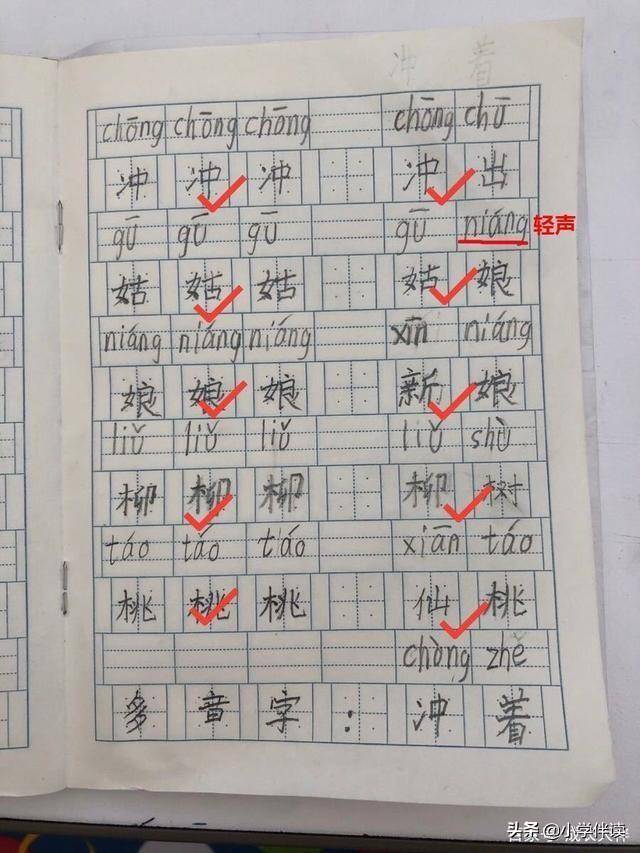 冲 着
chōng chōng chōng chōng chū
冲 冲 冲 冲 出
gū gū gū gū niáng 轻声
姑 姑 姑 姑 娘
niáng niáng niáng xīn niáng
娘 娘 娘 新 娘
liǔ liǔ liǔ liǔ shù
柳 柳 柳 柳 树
táo táo táo xiān táo
桃 桃 桃 仙 桃
chòng zhe
多 音 字 : 冲 着
头条 @小学伴读